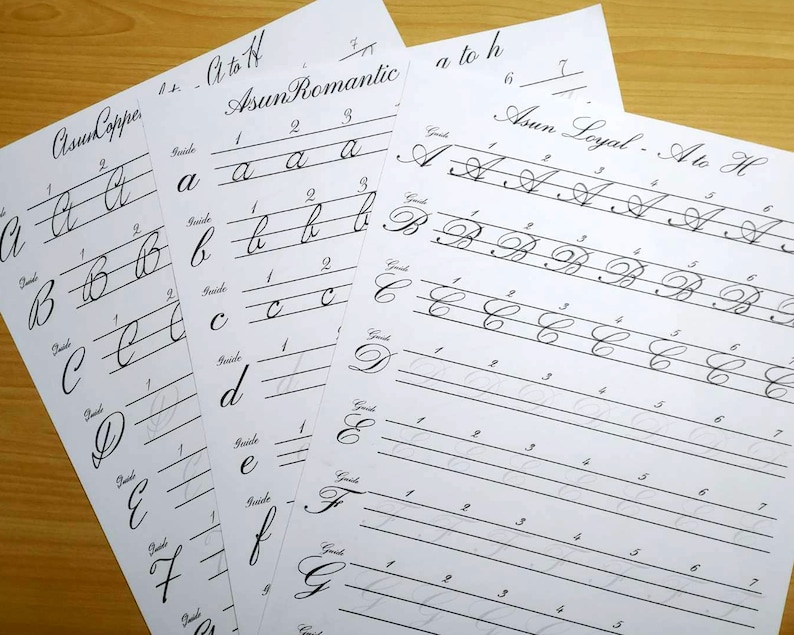 AsunCoppe A to H
7
1 2
A A A
Guide 1 2
B B B
Guide 1 2
C C C
Guide 1
D D
Guide 1
E
Guide 1
F
Guide
G
AsunRomantic a to h
6 7
Guide 1 2 3
a a a a
Guide 1 2 3
b b b b
Guide 1 2
c c c
Guide 1
d d
Guide 1
e
Guide
f
Asun Loyal - A to H
Guide 1 2 3 4 5 6
A A A A A A A
Guide 1 2 3 4 5 6 7
B B B B B B B B
Guide 1 2 3 4 5 6 7
C C C C C C C C
Guide 1 2 3 4 5 6 7
D D D D D D D D
Guide 1 2 3 4 5 6 7
E E E E E E E E
Guide 1 2 3 4 5 6 7
F F F F F F F F
Guide 1 2 3 4 5 6 7
G G G G G G G G
Guide 1 2 3 4 5 6 7